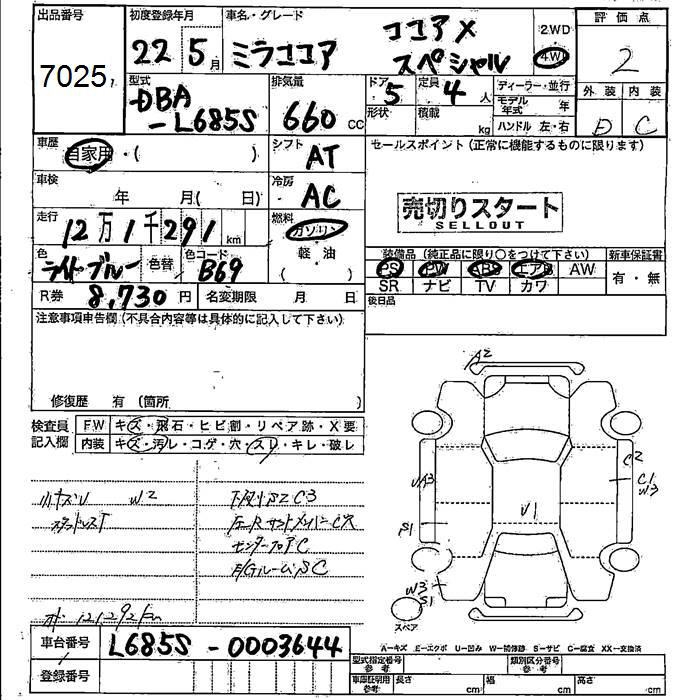 出品番号
7025
初度登録年月
22 5月
車名・グレード
ミラココア
ココアX
スペシャル
2.WD
4.WD
評価点
2
型式
DBA
-L685S
排気量
660 cc
ドア
5
形状
定員
4人
積載
kg
ディーラー・並行
モデル年式 年
ハンドル 左・右
外装 内装
D C
車歴
自家用・( )
シフト
AT
セールスポイント (正常に機能するものに限ります)
車検
年 月( 日)
冷房
AC
売切りスタート
SELLOUT
走行
12万1千291km
燃料
ガソリン
軽・油
( )
色
ライトブルー
色替
色コード
B69
装備品 (純正品に限り○をつけて下さい)
新車保証書
PS PW ABS エアB AW
SR ナビ TV カワ
有・無
R券 8,730円
名変期限 月 日
後日品
注意事項申告欄 (不具合内容等は具体的に記入して下さい)
修復歴 有 (箇所 )
検査員
記入欄
F.W キズ・飛石・ヒビ割・リペア跡・X要
内装 キズ・汚レ・コゲ・穴・スレ・キレ・破レ
W2
スタッドレス
下廻りS2C3
センターフロアC
E/GルームSC
A2
UA3
S1
W3
S1
スペア
V1
C2
C1
W3
A-キズ E-エクボ U-凹み W-補修跡 S-サビ C-腐食 XX-交換済
車台番号
L685S-0003644
型式指定番号
参考
類別区分番号
参考
登録番号
車庫証明用
参考
長さ cm
幅 cm
高さ cm